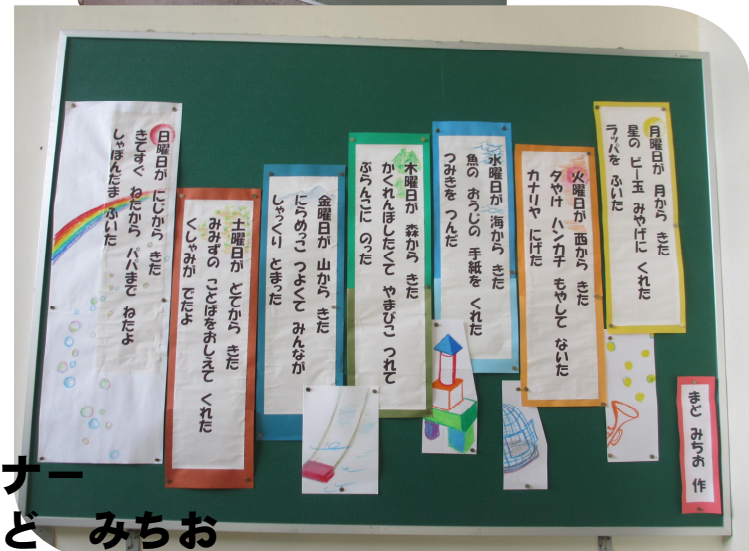 月曜日が 月から きた
星の ビー玉 みやげに くれた
ラッパを ふいた
火曜日が 西から きた
夕やけ ハンカチ もやして ないた
カナリヤ にげた
水曜日が 海から きた
魚の おうじの 手紙を くれた
つみきを つんだ
木曜日が 森から きた
かくれんぼしたくて やまびこ つれて
ぶらんこに のった
金曜日が 山から きた
にらめっこ つよくて みんなが
しゃっくり とまった
土曜日が どてから きた
みみずの ことばをおしえて くれた
くしゃみが でたよ
日曜日が にじから きた
きてすぐ ねたから パパまで ねたよ
しゃぼんだま ふいた
まど みちお 作
ナー
ど　みちお